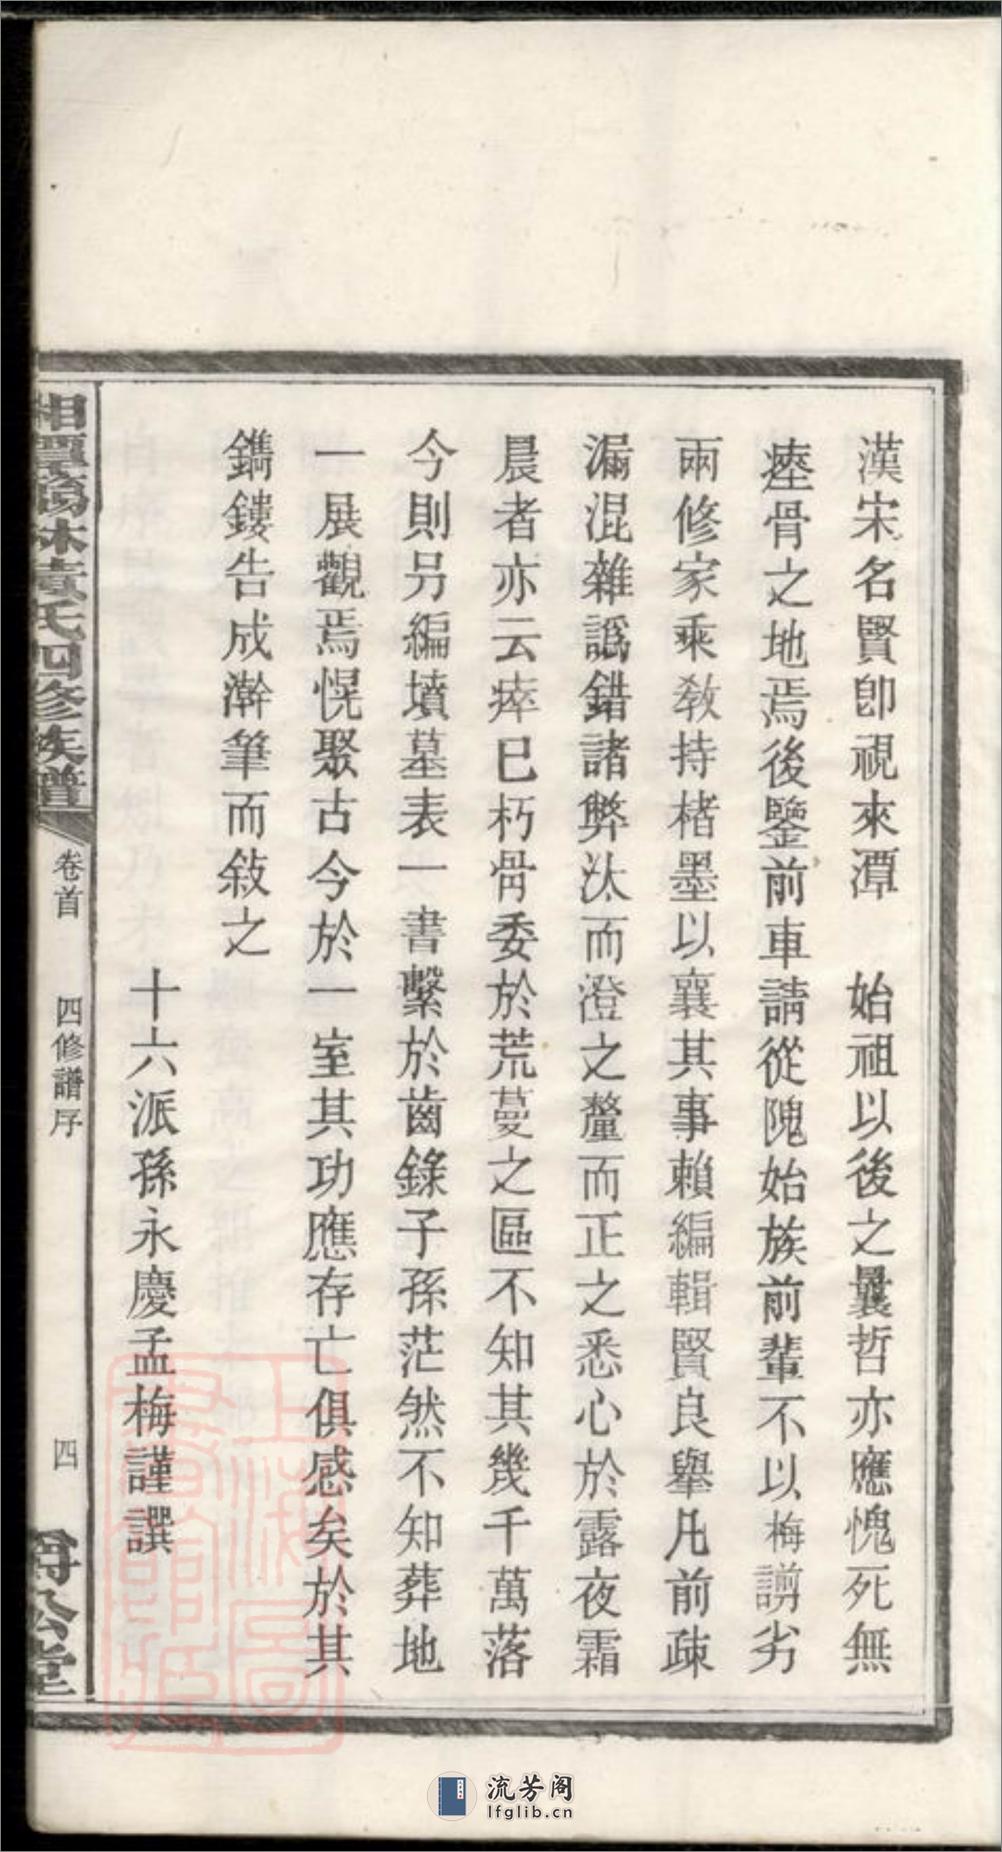 漢宋名賢卽視來潭 始祖以後之曩哲亦應愧死無
瘞骨之地焉後鑒前車請從隗始族前輩不以梅謭劣
兩修家乘敎持楮墨以襄其事賴編輯賢良舉凡前疎
漏混雜譌錯諸弊汰而澄之釐而正之悉心於露夜霜
晨者亦云瘁已朽骨委於荒蔓之區不知其幾千萬落
今則另編墳墓表一書繫於齒錄子孫茫然不知葬地
一展觀焉恍聚古今於一室其功應存亡俱感矣於其
鐫鏤告成澣筆而敍之
十六派孫永慶孟梅謹譔
湘潭 林黃氏四修族譜
卷首 四修譜序 四
公堂
上海圖書館藏
流芳阁
lfglib.cn